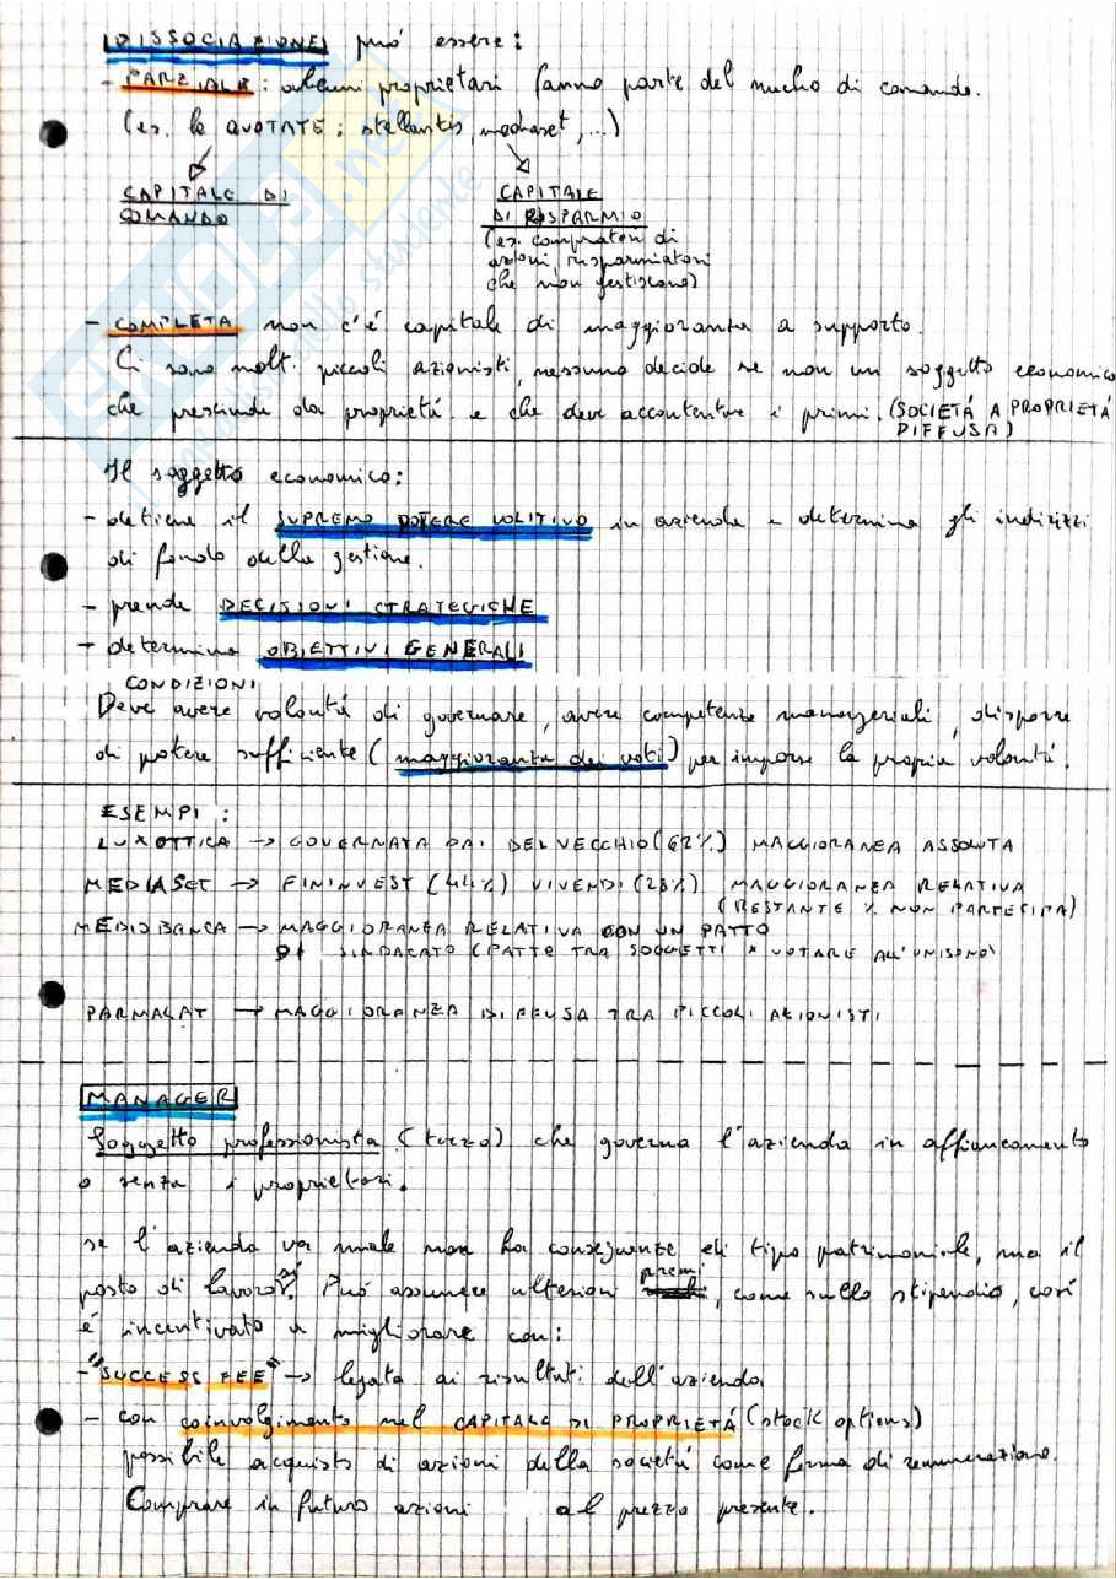 DISSOCIAZIONE può essere:
- PARZIALE: alcuni proprietari fanno parte del nucleo di comando.
(es. le QUOTATE: stellantis, mediaset, ...)
CAPITALE DI COMANDO
CAPITALE DI RISPARMIO
(es. compratori di
azioni, risparmiatori
che non gestiscono)
- COMPLETA non c'é capitale di maggioranza a supporto.
Ci sono molti piccoli azionisti, nessuno decide se non un soggetto economico
che prescinde da proprietá e che deve accontentare i primi. (SOCIETÁ A PROPRIETÁ
DIFFUSA)
Il soggetto economico:
- detiene il SUPREMO POTERE VOLITIVO in azienda e determina gli indirizzi
di fondo della gestione.
- prende DECISIONI STRATEGICHE
- determina OBIETTIVI GENERALI
CONDIZIONI
Deve avere volontá di governare, avere competenze manageriali, disporre
di potere sufficiente (maggioranza dei voti) per imporre la propria volontá.
ESEMPI:
LUXOTTICA → GOVERNATA DAI DEL VECCHIO (62%) MAGGIORANZA ASSOLUTA
MEDIASET → FININVEST (44%) VIVENDI (28%) MAGGIORANZA RELATIVA
(RESTANTE % NON PARTECIPA)
MEDIOBANCA → MAGGIORANZA RELATIVA CON UN PATTO
DI SINDACATO (PATTO TRA SOGGETTI A VOTARE ALL'UNISONO)
PARMALAT → MAGGIORANZA DIFFUSA TRA PICCOLI AZIONISTI
MANAGER
Soggetto professionista (terzo) che governa l'azienda in affiancamento
o senza i proprietari.
se l'azienda va male non ha conseguenze di tipo patrimoniale, ma il
posto di lavoro sí. Puó assumere ulteriori premi, come sullo stipendio, cosí
é incentivato a migliorare con:
- "SUCCESS FEE" → legata ai risultati dell'azienda.
- con coinvolgimento nel CAPITALE DI PROPRIETÁ (stock options)
possibile acquisto di azioni della societá come forma di remunerazione.
Comprare in futuro azioni al prezzo presente.